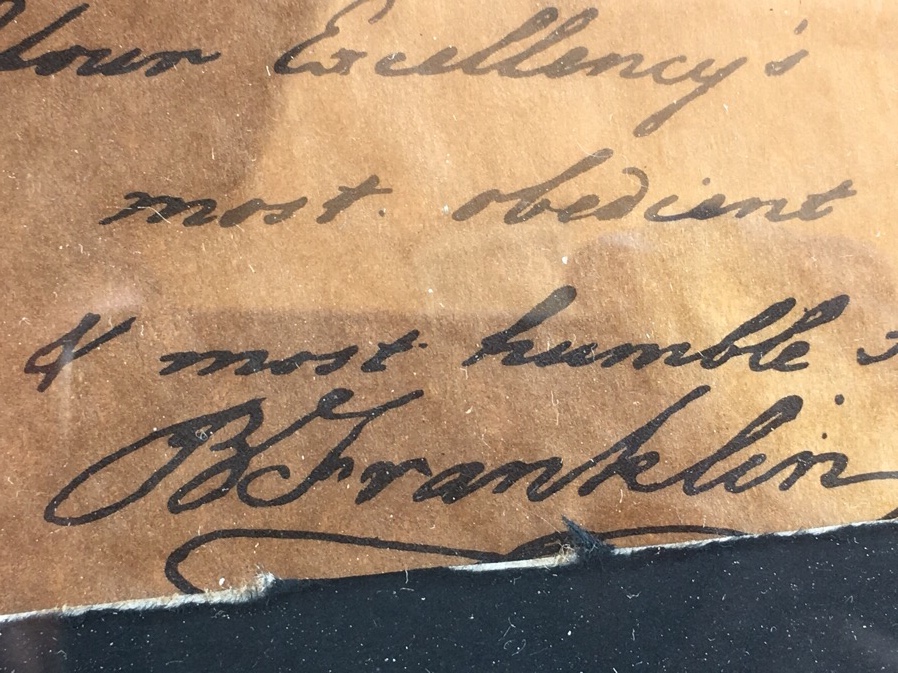 Your Excellency's
most obedient
& most humble s
B Franklin